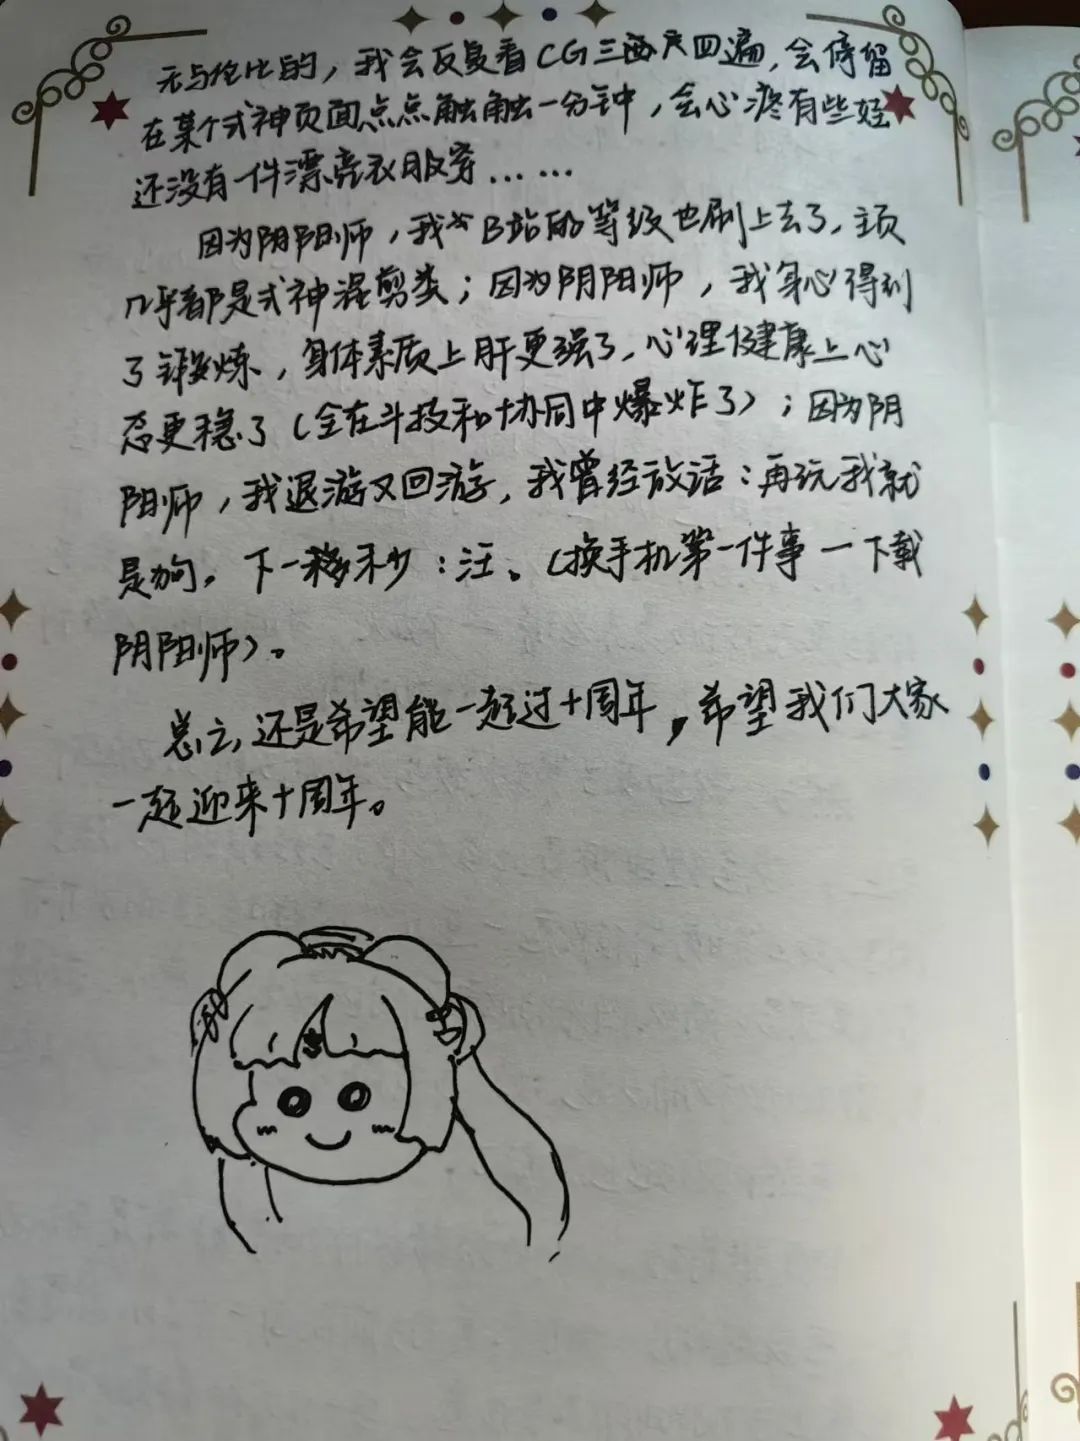 无与伦比的，我会反复看CG三四遍，会停留
在某个式神页面点点触触一分钟，会心疼有些娃
还没有一件漂亮衣服穿……
因为阴阳师，我B站的等级也刷上去了，主页
几乎都是式神混剪类；因为阴阳师，我身心得到
了锻炼，身体素质上肝更强了，心理健康上心
态更稳了（全在斗技和协同中爆炸了）；因为阴
阳师，我退游又回游，我曾经放话：再玩我就
是狗。下一秒：汪。（换手机第一件事一下载
阴阳师）。
总之，还是希望能一起过十周年，希望我们大家
一起迎来十周年。